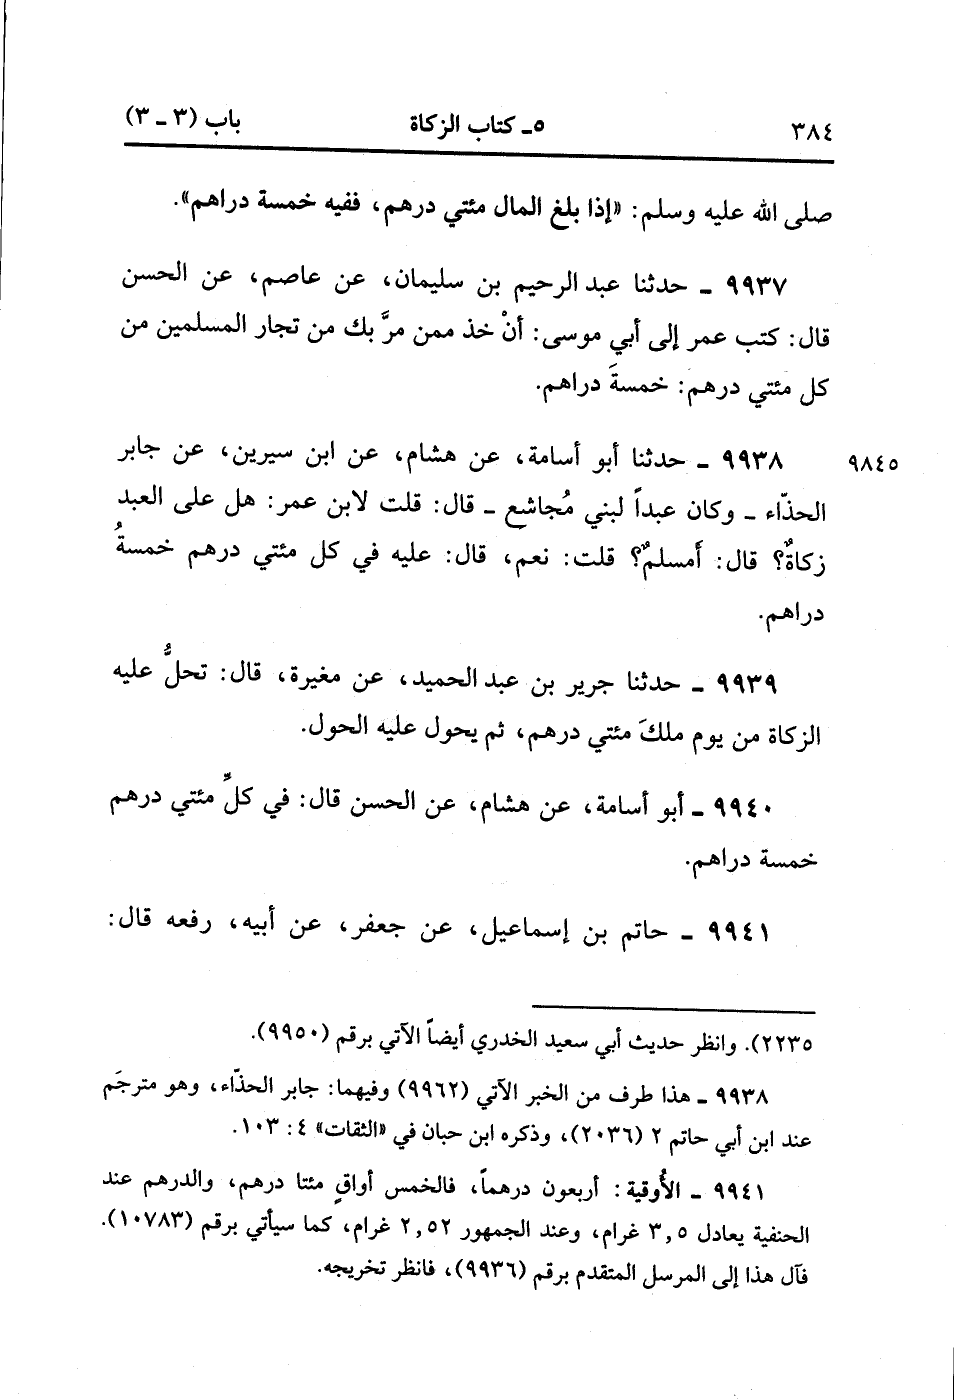 ٣٨٤ ٥ـ كتاب الزكاة باب (٣ ـ ٣)
صلى الله عليه وسلم: «إذا بلغ المال مئتي درهم، ففيه خمسة دراهم».
٩٩٣٧ ـ حدثنا عبد الرحيم بن سليمان، عن عاصم، عن الحسن
قال: كتب عمر إلى أبي موسى: أنْ خذ ممن مرَّ بك من تجار المسلمين من
كل مئتي درهم: خمسةَ دراهم.
٩٨٤٥ ٩٩٣٨ ـ حدثنا أبو أسامة، عن هشام، عن ابن سيرين، عن جابر
الحذّاء ـ وكان عبداً لبني مُجاشع ـ قال: قلت لابن عمر: هل على العبد
زكاةٌ؟ قال: أمسلمٌ؟ قلت: نعم، قال: عليه في كل مئتي درهم خمسةُ
دراهم.
٩٩٣٩ ـ حدثنا جرير بن عبد الحميد، عن مغيرة، قال: تحلُّ عليه
الزكاة من يوم ملكَ مئتي درهم، ثم يحول عليه الحول.
٩٩٤٠ ـ أبو أسامة، عن هشام، عن الحسن قال: في كلِّ مئتي درهم
خمسة دراهم.
٩٩٤١ ـ حاتم بن إسماعيل، عن جعفر، عن أبيه، رفعه قال:
٢٢٣٥). وانظر حديث أبي سعيد الخدري أيضاً الآتي برقم (٩٩٥٠).
٩٩٣٨ ـ هذا طرف من الخبر الآتي (٩٩٦٢) وفيهما: جابر الحذّاء، وهو مترجَم
عند ابن أبي حاتم ٢ (٢٠٣٦)، وذكره ابن حبان في «الثقات» ٤: ١٠٣.
٩٩٤١ ـ الأُوقية: أربعون درهماً، فالخمس أواقٍ مئتا درهم، والدرهم عند
الحنفية يعادل ٣,٥ غرام، وعند الجمهور ٢,٥٢ غرام، كما سيأتي برقم (١٠٧٨٣).
فآل هذا إلى المرسل المتقدم برقم (٩٩٣٦)، فانظر تخريجه.